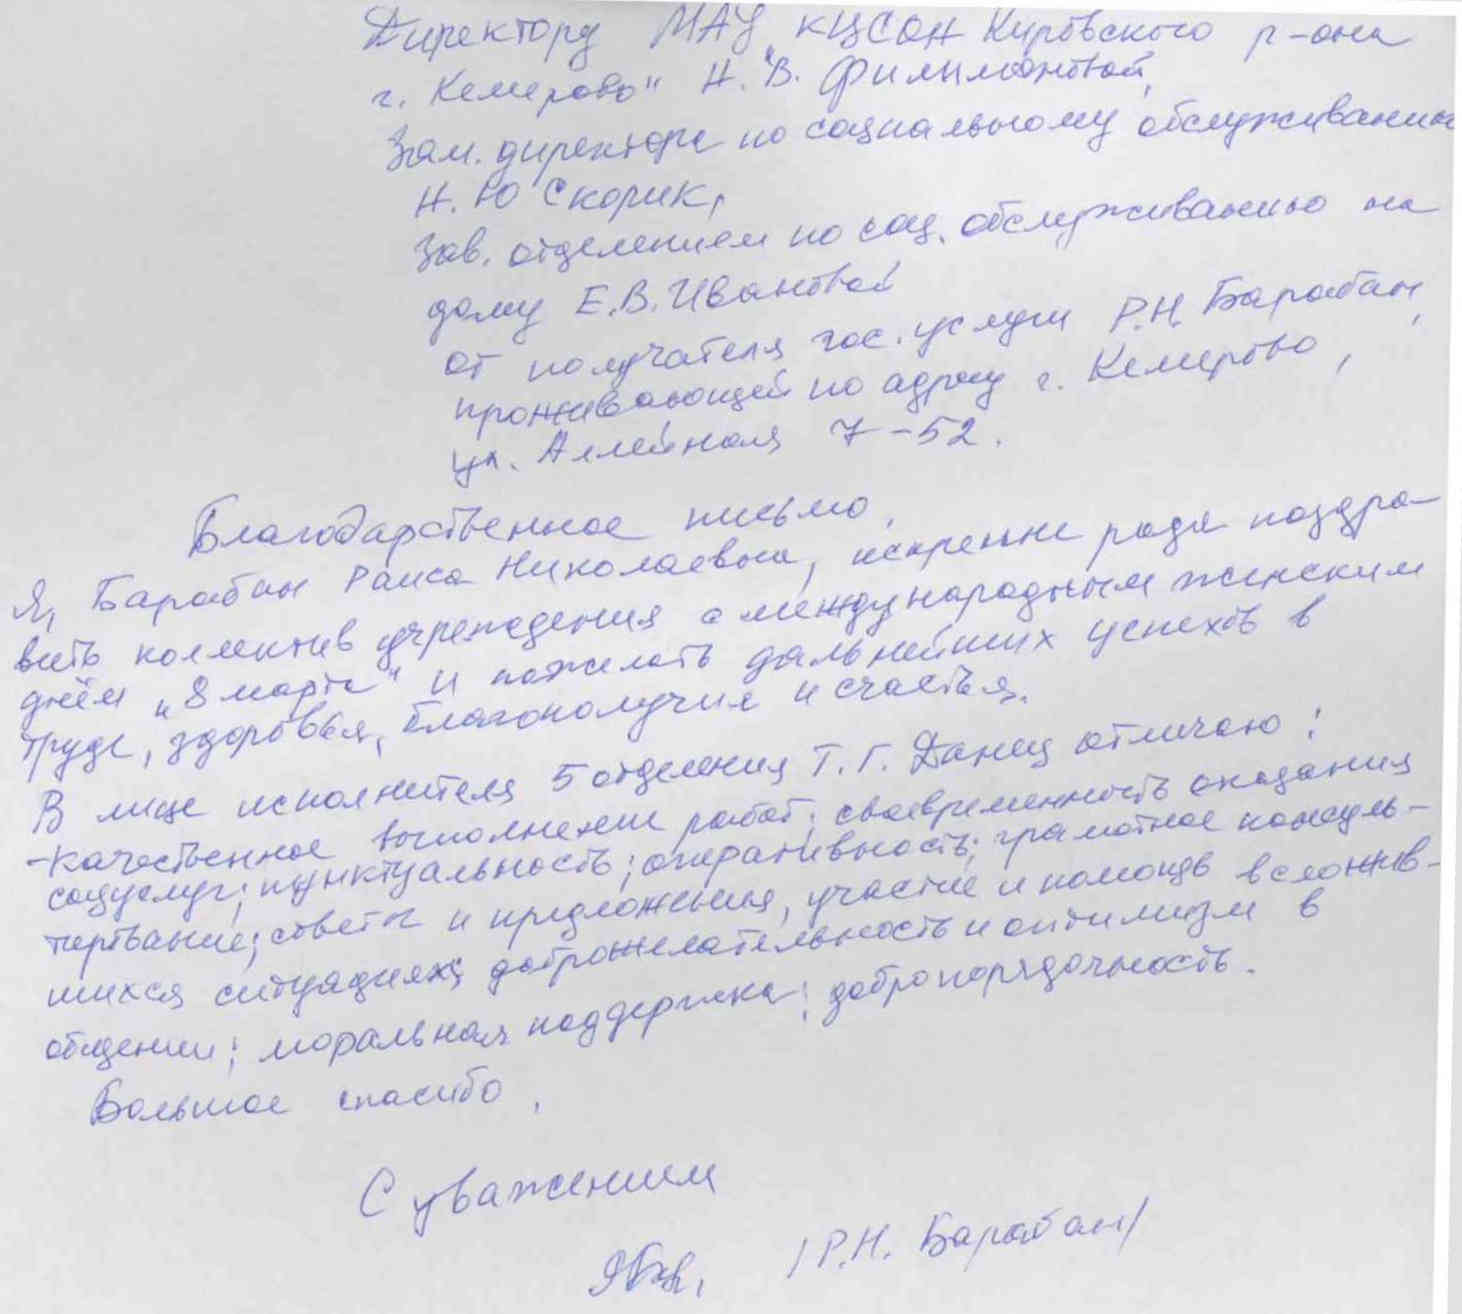 Директору МАУ "КЦСОН Кировского р-она
г. Кемерово" Н.В. Филимоновой,
Зам. директора по социальному обслуживанию
Н.Ю Скорик,
Зав. отделением по соц. обслуживанию на
дому Е.В. Ивановой
от получателя гос. услуги Р.Н. Барабан,
проживающей по адресу г. Кемерово,
ул. Аллейная 7-52.
Благодарственное письмо.
Я, Барабан Раиса Николаевна, искренне рада поздра-
вить коллектив учреждения с международным женским
днём „8 марта" и пожелать дальнейших успехов в
труде, здоровья, благополучия и счастья.
В лице исполнителя 5 отделения Т.Г. Данец отмечаю:
-качественное выполнение работ; своевременность оказания
соцуслуг; пунктуальность; оперативность; грамотное консуль-
тирование; советы и предложения, участие и помощь в сложив-
шихся ситуациях; доброжелательность и оптимизм в
общении; моральная поддержка; добропорядочность.
Большое спасибо.
С уважением
/Р.Н. Барабан/